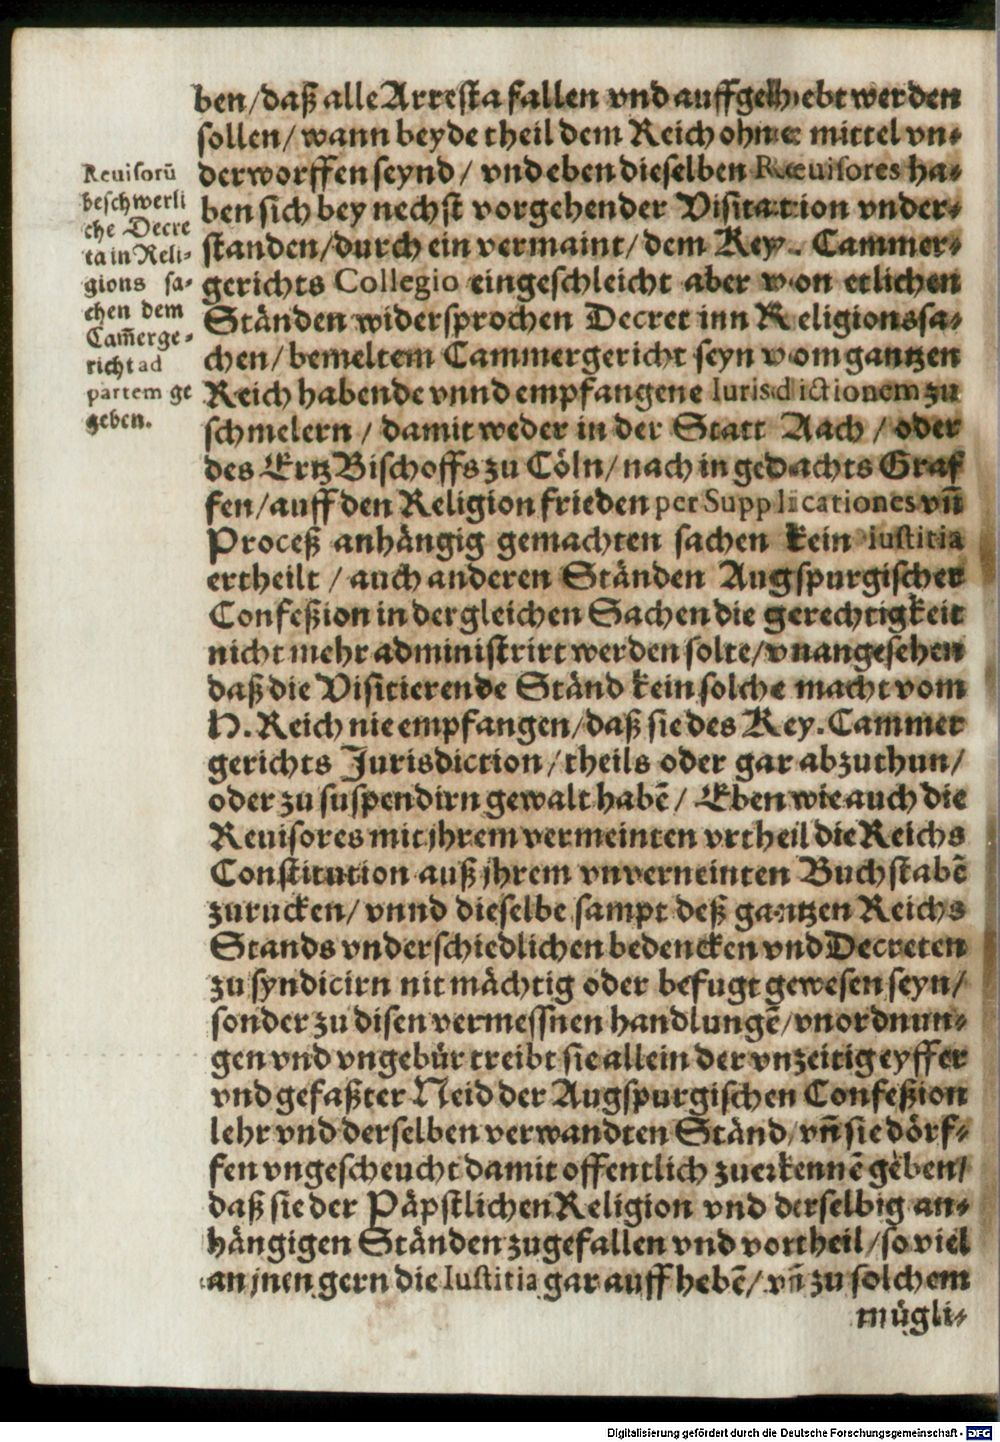 ben/daß alle Arresta fallen vnd auffgehebt werden
sollen/ wann beyde theil dem Reich ohne mittel vn-
derworffen seynd/ vnd eben dieselben Reuisores ha-
ben sich bey nechst vorgehender Visitation vnder-
standen/durch ein vermaint/dem Key. Cammer-
gerichts Collegio eingeschleicht aber von etlichen
Ständen widersprochen Decret inn Religionssa-
chen/bemeltem Cammergericht seyn vom gantzen
Reich habende vnnd empfangene Iurisdictionem zu
schmelern / damit weder in der Statt Aach / oder
des Ertz Bischoffs zu Cöln/nach in gedachts Graf
fen/auff den Religion frieden per Supplicationes vñ
Proceß anhängig gemachten sachen kein iustitia
ertheilt / auch anderen Ständen Augspurgischer
Confeßion in dergleichen Sachen die gerechtigkeit
nicht mehr administrirt werden solte/vnangesehen
daß die Visitierende Ständ kein solche macht vom
H. Reich nie empfangen/daß sie des Key. Cammer
gerichts Jurisdiction/theils oder gar abzuthun/
oder zu suspendirn gewalt habẽ/ Eben wie auch die
Reuisores mit jhrem vermeinten vrtheil die Reichs
Constitution auß jhrem vnverneinten Buchstabẽ
zurucken/ vnnd dieselbe sampt deß gantzen Reichs
Stands vnderschiedlichen bedencken vnd Decreten
zu syndicirn nit mächtig oder befugt gewesen seyn/
sonder zu disen vermessnen handlungẽ/vnordnun-
gen vnd vngebür treibt sie allein der vnzeitig eyffer
vnd gefaßter Neid der Augspurgischen Confeßion
lehr vnd derselben verwandten Ständ/vñ sie dörf-
fen vngescheucht damit offentlich zuerkennẽ geben/
daß sie der Päpstlichen Religion vnd derselbig an-
hängigen Ständen zugefallen vnd vortheil/so viel
an jnen gern die Iustitia gar auff hebẽ/ vñ zu solchem
mügli-
Reuisorũ
beschwerli
che Decre
ta in Reli-
gions sa-
chen dem
Cam̃erge-
richt ad
partem ge
geben.
Digitalisierung gefördert durch die Deutsche Forschungsgemeinschaft - DFG